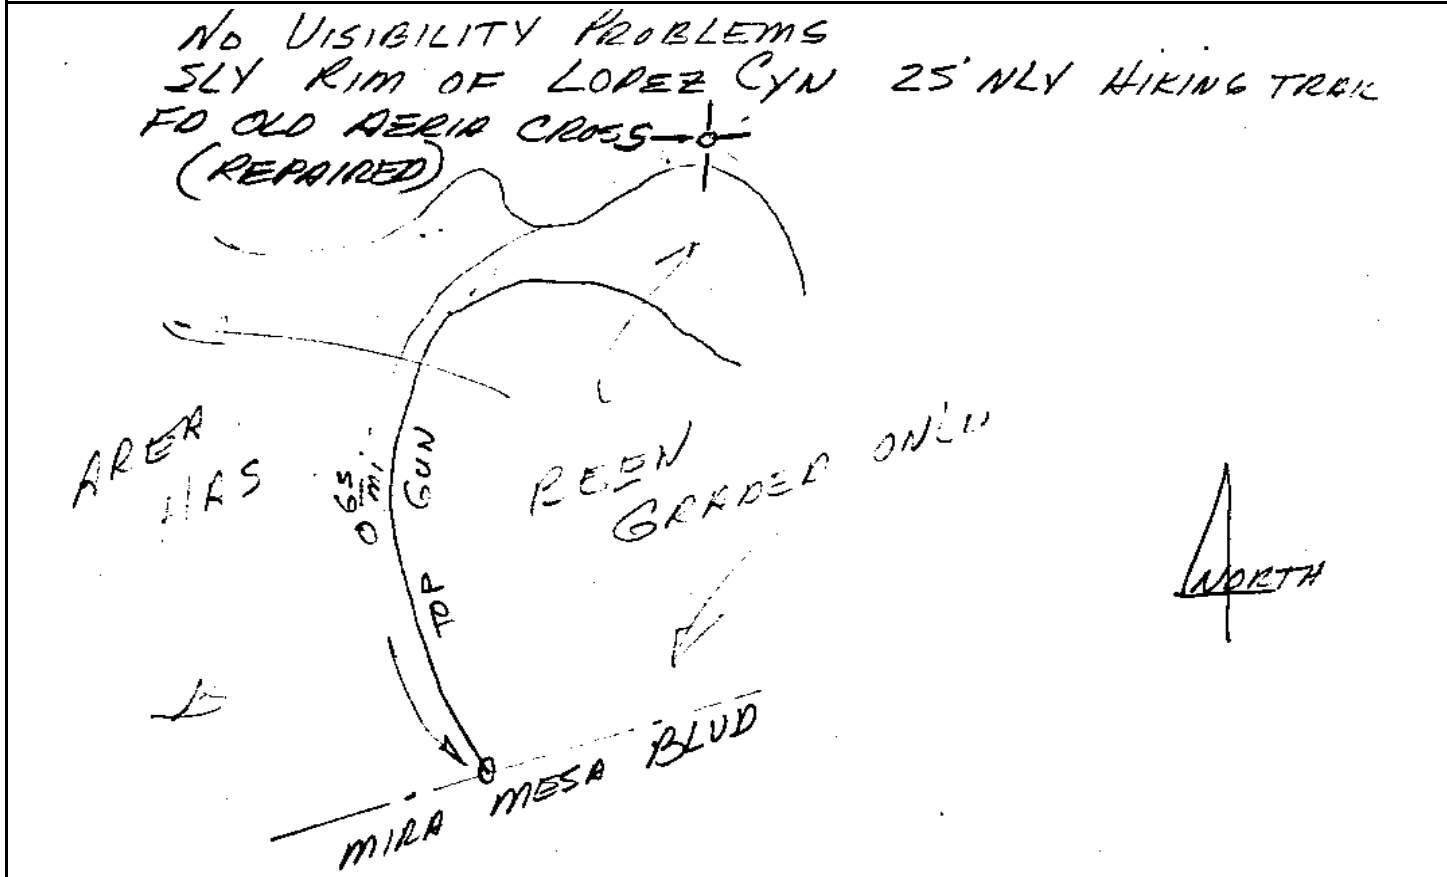 NO VISIBILITY PROBLEMS
SLY RIM OF LOPEZ CYN 25' NLY HIKING TRAIL
FD OLD AERIA CROSS
(REPAIRED)
AREA
HAS
BEEN
GRADED ONLY
0 65 mi
TOP GUN
NORTH
MIRA MESA BLVD